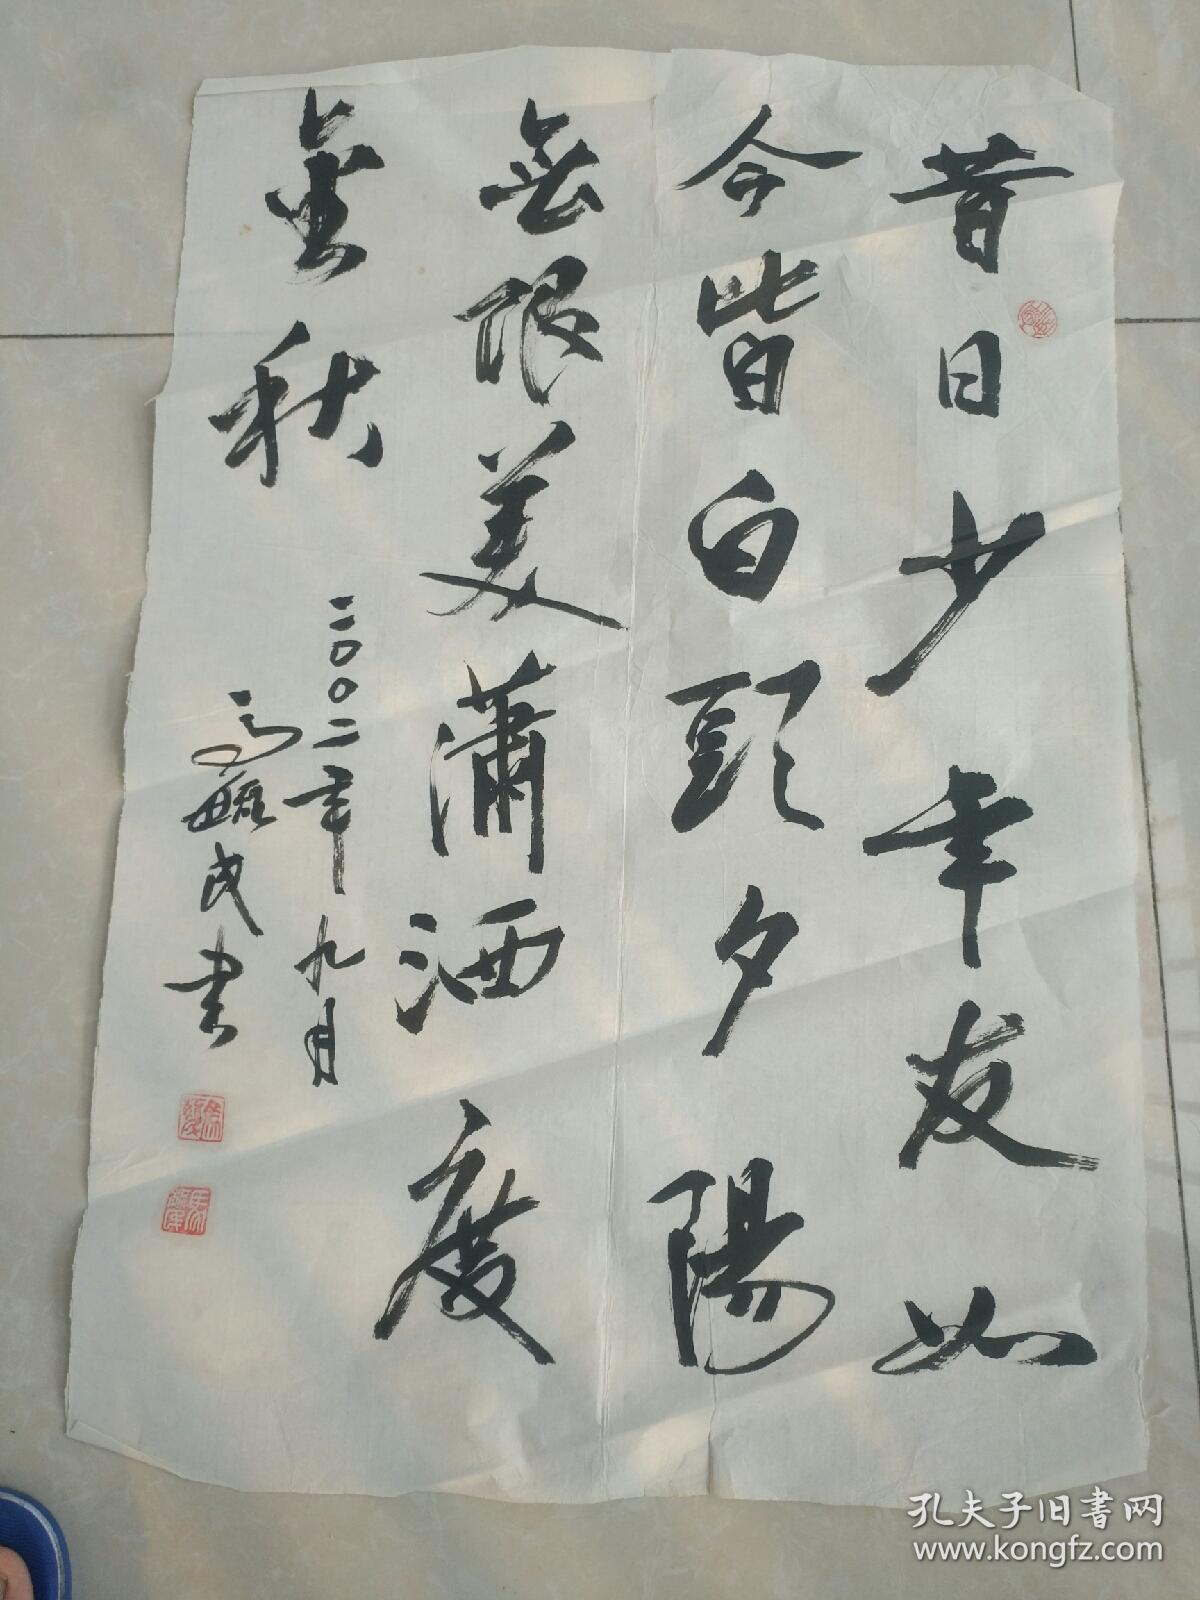 昔日少年友如
今皆白頭夕陽
無限美瀟洒度
金秋
二〇〇二年九月
馬毓民書
孔夫子旧書网
www.kongfz.com